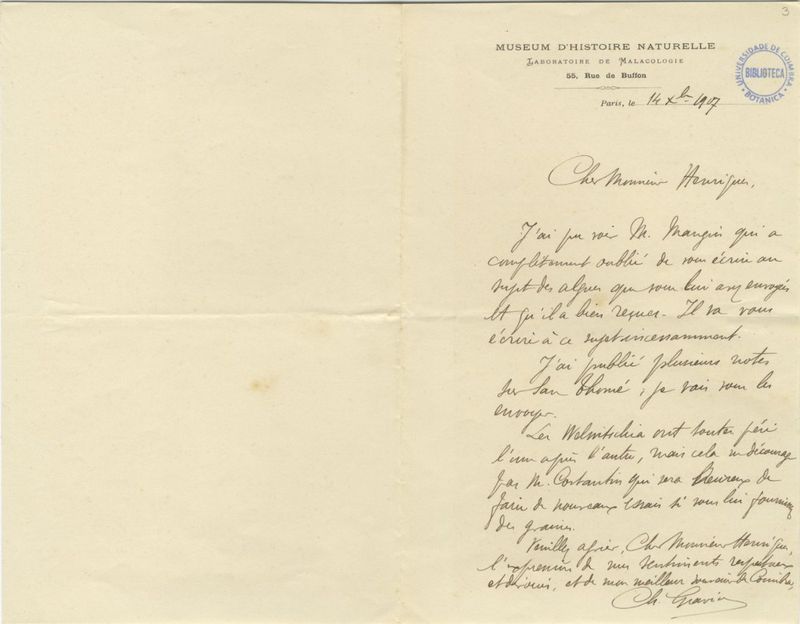 3
MUSEUM D'HISTOIRE NATURELLE
LABORATOIRE DE MALACOLOGIE
55, Rue de Buffon
UNIVERSIDADE DE COIMBRA
BIBLIOTECA
BOTANICA
Paris, le 14 Xbre 1907
Cher Monsieur Henriques,
J'ai pu voir M. Mangin qui a
complètement oublié de vous écrire au
sujet des algues que vous lui avez envoyés
et qu'il a bien reçues. Il va vous
écrire à ce sujet incessamment.
J'ai publié plusieurs notes
sur San Thomé, je vais vous les
envoyer.
Les Welwitschia ont toutes péri
l'une après l'autre, mais cela ne décourage
pas M. Costantin qui sera heureux de
faire de nouveaux essais si vous lui fournissez
des graines.
Veuillez agréer, Cher Monsieur Henriques,
l'expression de mes sentiments respectueux
et dévoués, et de mon meilleur souvenir de Coimbra,
Ch. Gravier